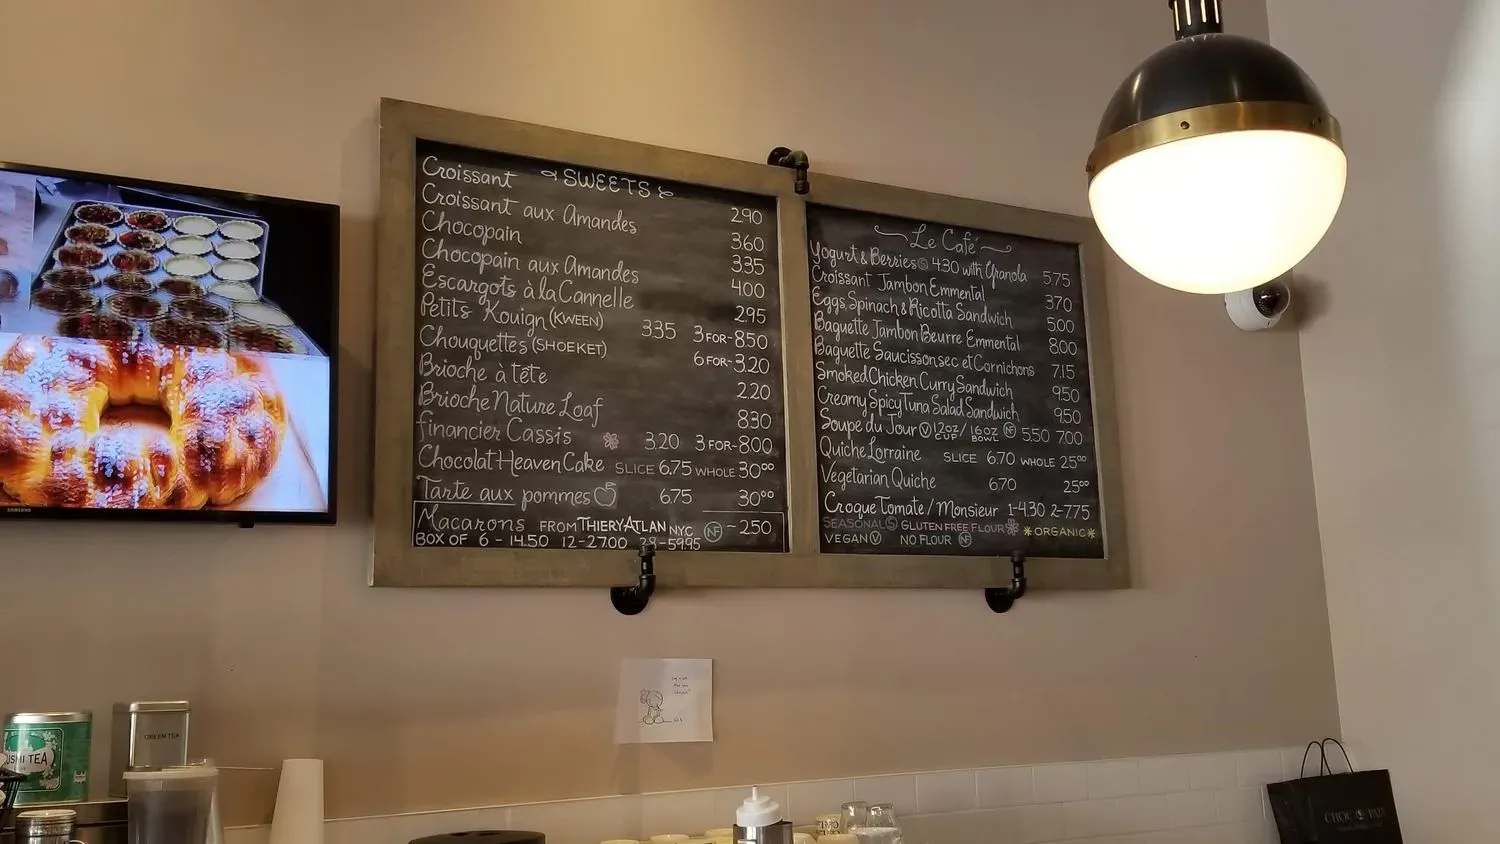 SWEETS
Croissant 2.90
Croissant aux Amandes 3.60
Chocopain 3.35
Chocopain aux Amandes 4.00
Escargots à la Cannelle 2.95
Petits Kouign (KWEEN) 3.35 3 FOR-8.50
Chouquettes (SHOEKET) 6 FOR-3.20
Brioche à tête 2.20
Brioche Nature Loaf 8.30
financier Cassis 3.20 3 FOR-8.00
Chocolat Heaven Cake SLICE 6.75 WHOLE 30⁰⁰
Tarte aux pommes 6.75 30⁰⁰
Macarons FROM THIERY ATLAN NYC NF -2.50
BOX OF 6 - 14.50 12-27.00 28-59.95
Le Café
Yogurt & Berries Ⓢ 4.30 with Granola 5.75
Croissant Jambon Emmental 3.70
Eggs, Spinach & Ricotta Sandwich 5.00
Baguette Jambon Beurre Emmental 8.00
Baguette Saucisson sec et Cornichons 7.15
Smoked Chicken Curry Sandwich 9.50
Creamy Spicy Tuna Salad Sandwich 9.50
Soupe du Jour Ⓥ 12oz CUP / 16oz BOWL NF 5.50 7.00
Quiche Lorraine SLICE 6.70 WHOLE 25⁰⁰
Vegetarian Quiche 6.70 25⁰⁰
Croque Tomate / Monsieur 1-4.30 2-7.75
SEASONAL Ⓢ GLUTEN FREE FLOUR *ORGANIC*
VEGAN Ⓥ NO FLOUR NF
SAMSUNG
GREEN TEA
TEA
CHOC PAIN